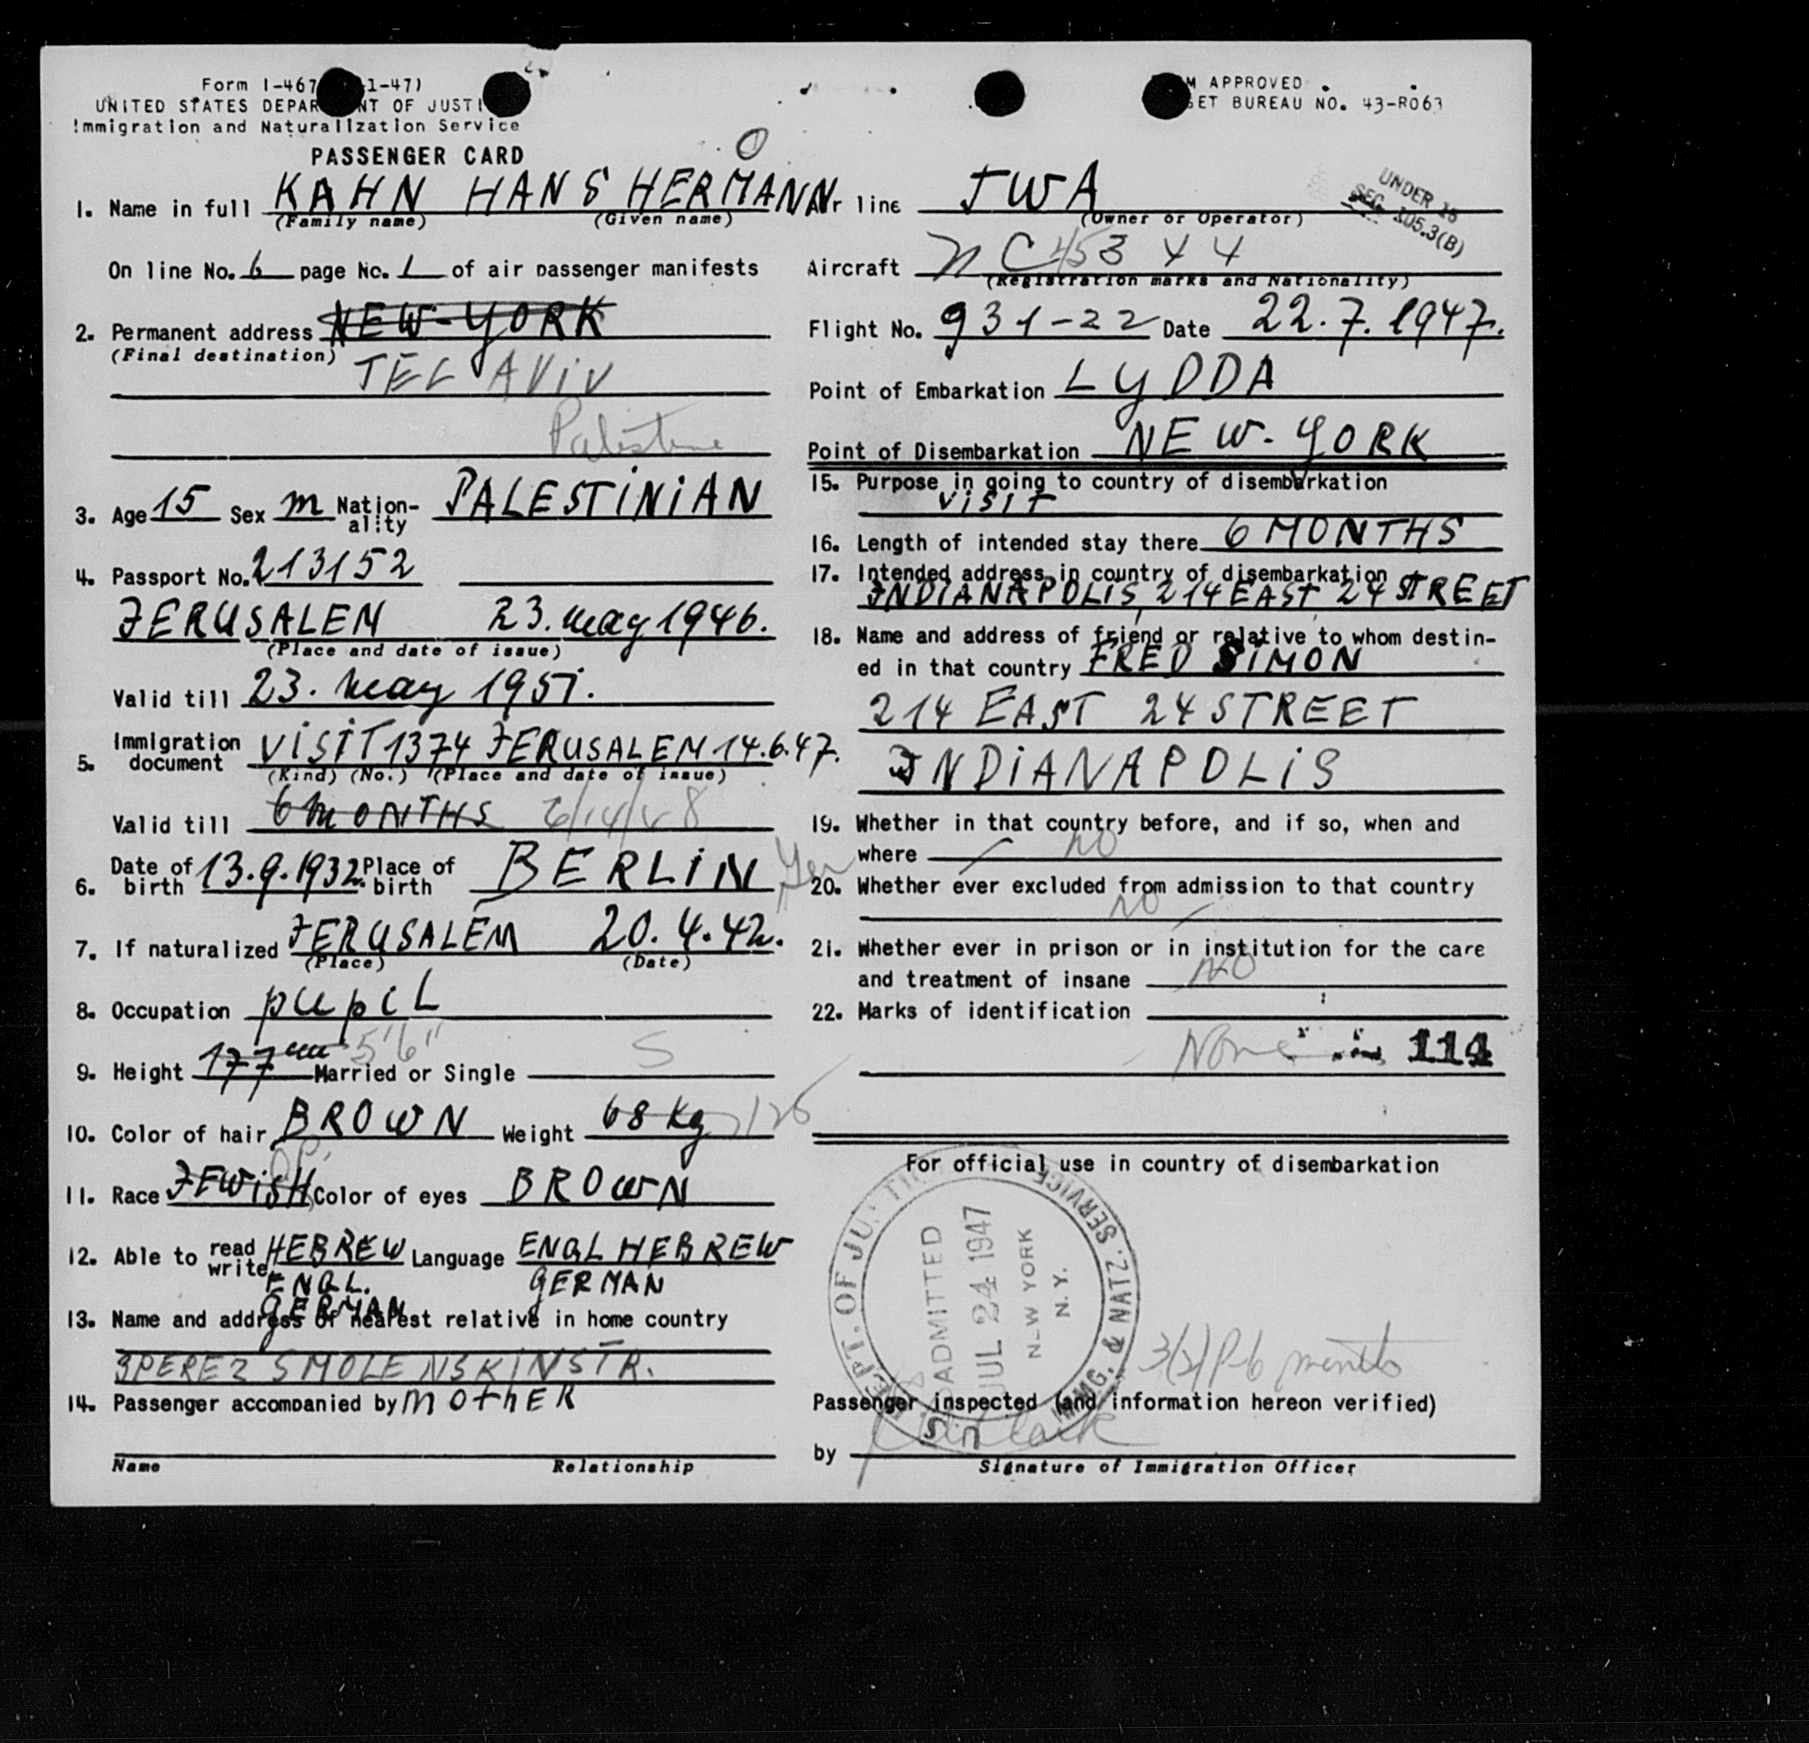 Form I-467 1-47)
UNITED STATES DEPAR NT OF JUSTI
Immigration and Naturalization Service
PASSENGER CARD
M APPROVED
GET BUREAU NO. 43-R063
O
1. Name in full KAHN HANS HERMANN
(Family name) (Given name)
On line No. 6 page No. 1 of air passenger manifests
2. Permanent address NEW-YORK
(Final destination)
TEL AViV
Palestine
3. Age 15 Sex m Nation-ality PALESTiNiAN
4. Passport No. 213152
JERUSALEM 23. may 1946.
(Place and date of issue)
Valid till 23. may 1951.
5. Immigration document ViSiT 1374 JERUSALEM 14.6.47.
(Kind) (No.) (Place and date of issue)
Valid till 6 mONTHS 6/14/48
6. Date of birth 13.9.1932. Place of birth BERLiN Ger
7. If naturalized JERUSALEM 20.4.42.
(Place) (Date)
8. Occupation pupil
9. Height 177 cm 5'6" Married or Single S
10. Color of hair BROWN Weight 68 Kg 126
11. Race JEWiSH Color of eyes BROWN
12. Able to read write HEBREW Language ENGL HEBREW
ENGL. GERMAN
GERMAN
13. Name and address of nearest relative in home country
3 PEREZ SMOLENSKINSTR.
14. Passenger accompanied by mOthER
Name Relationship
Air line TWA
(Owner or Operator)
UNDER 16
SEC. 105.3(B)
Aircraft NC 45344
(Registration marks and Nationality)
Flight No. 931-22 Date 22.7.1947.
Point of Embarkation LYDDA
Point of Disembarkation NEW-YORK
15. Purpose in going to country of disembarkation
ViSiT
16. Length of intended stay there 6 MONTHS
17. Intended address in country of disembarkation
INDIANAPOLIS, 214 EAST 24 STREET
18. Name and address of friend or relative to whom destin-
ed in that country FRED SiMON
214 EAST 24 STREET
INDiANAPOLiS
19. Whether in that country before, and if so, when and
where no
20. Whether ever excluded from admission to that country
no
21. Whether ever in prison or in institution for the care
and treatment of insane NO
22. Marks of identification
None 114
For official use in country of disembarkation
DEPT. OF JUSTICE IMMG. & NATZ. SERVICE
ADMITTED
JUL 24 1947
NEW YORK
N.Y.
3(2) P-6 months
Passenger inspected (and information hereon verified)
by
Signature of Immigration Officer